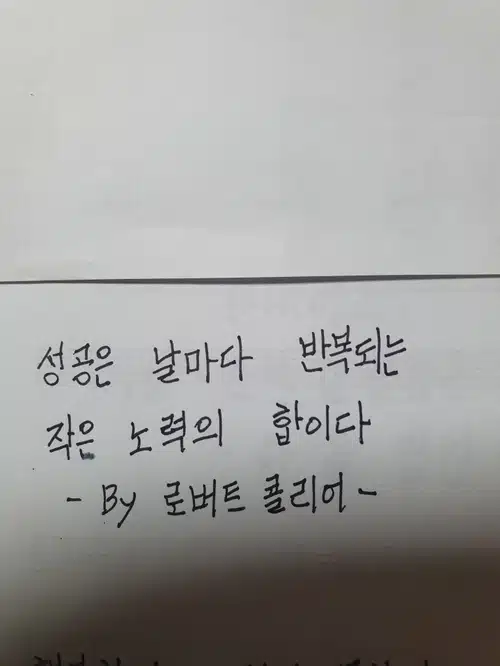 성공은 날마다 반복되는
작은 노력의 합이다
- By 로버트 콜리어 -